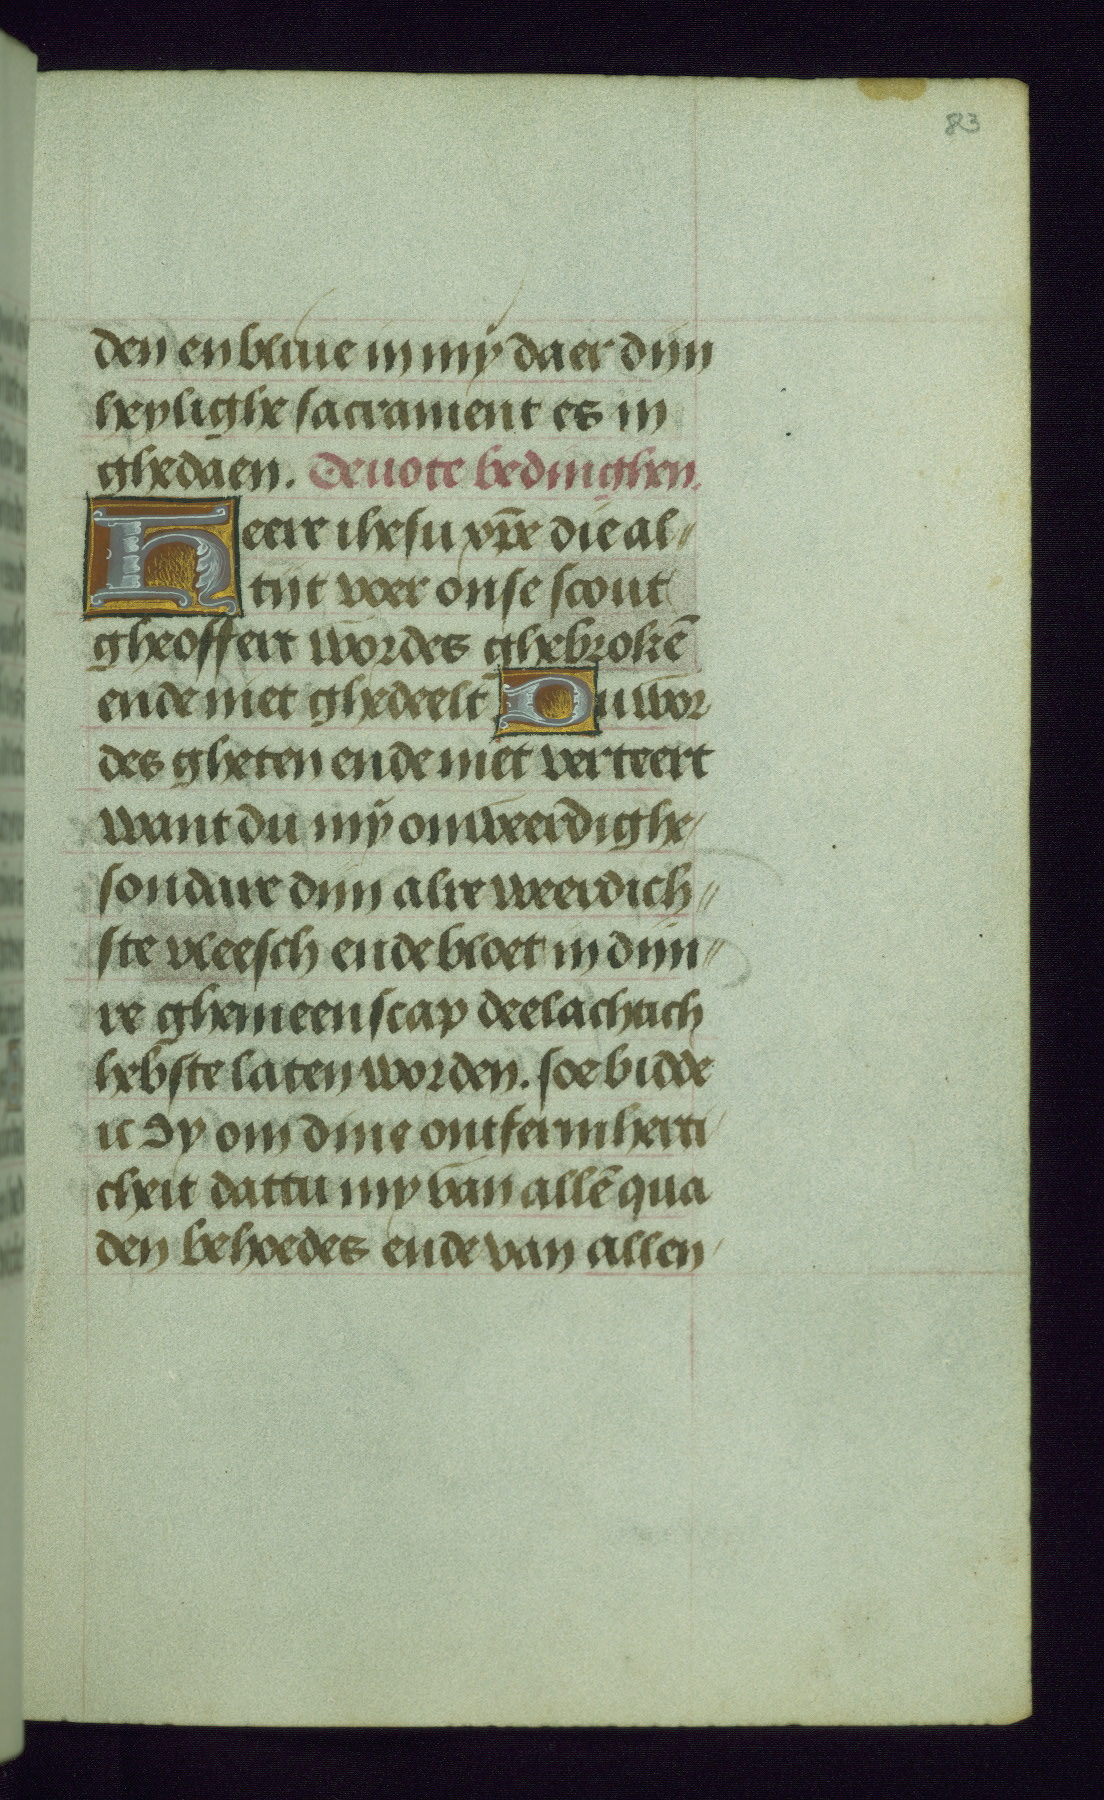 83
den en bliue in mÿ daer dijn
heylighe sacrament es in
ghedaen. Deuote bedinghen.
Heere ihesu xp̄e die al⸗
tijt voer onse scout
gheoffert wordes ghebrokē
ende niet ghedeelt Du wor
des gheten ende niet verteert
want du mÿ onweerdighe
sondare dijn alre weerdich⸗
ste vleesch ende bloet in dijn⸗
re ghemeenscap deelachtich
hebste laten worden. soe bidde
ic dy om dine ontfermherti
cheit dattu my van allē qua
den behoedes ende van allen